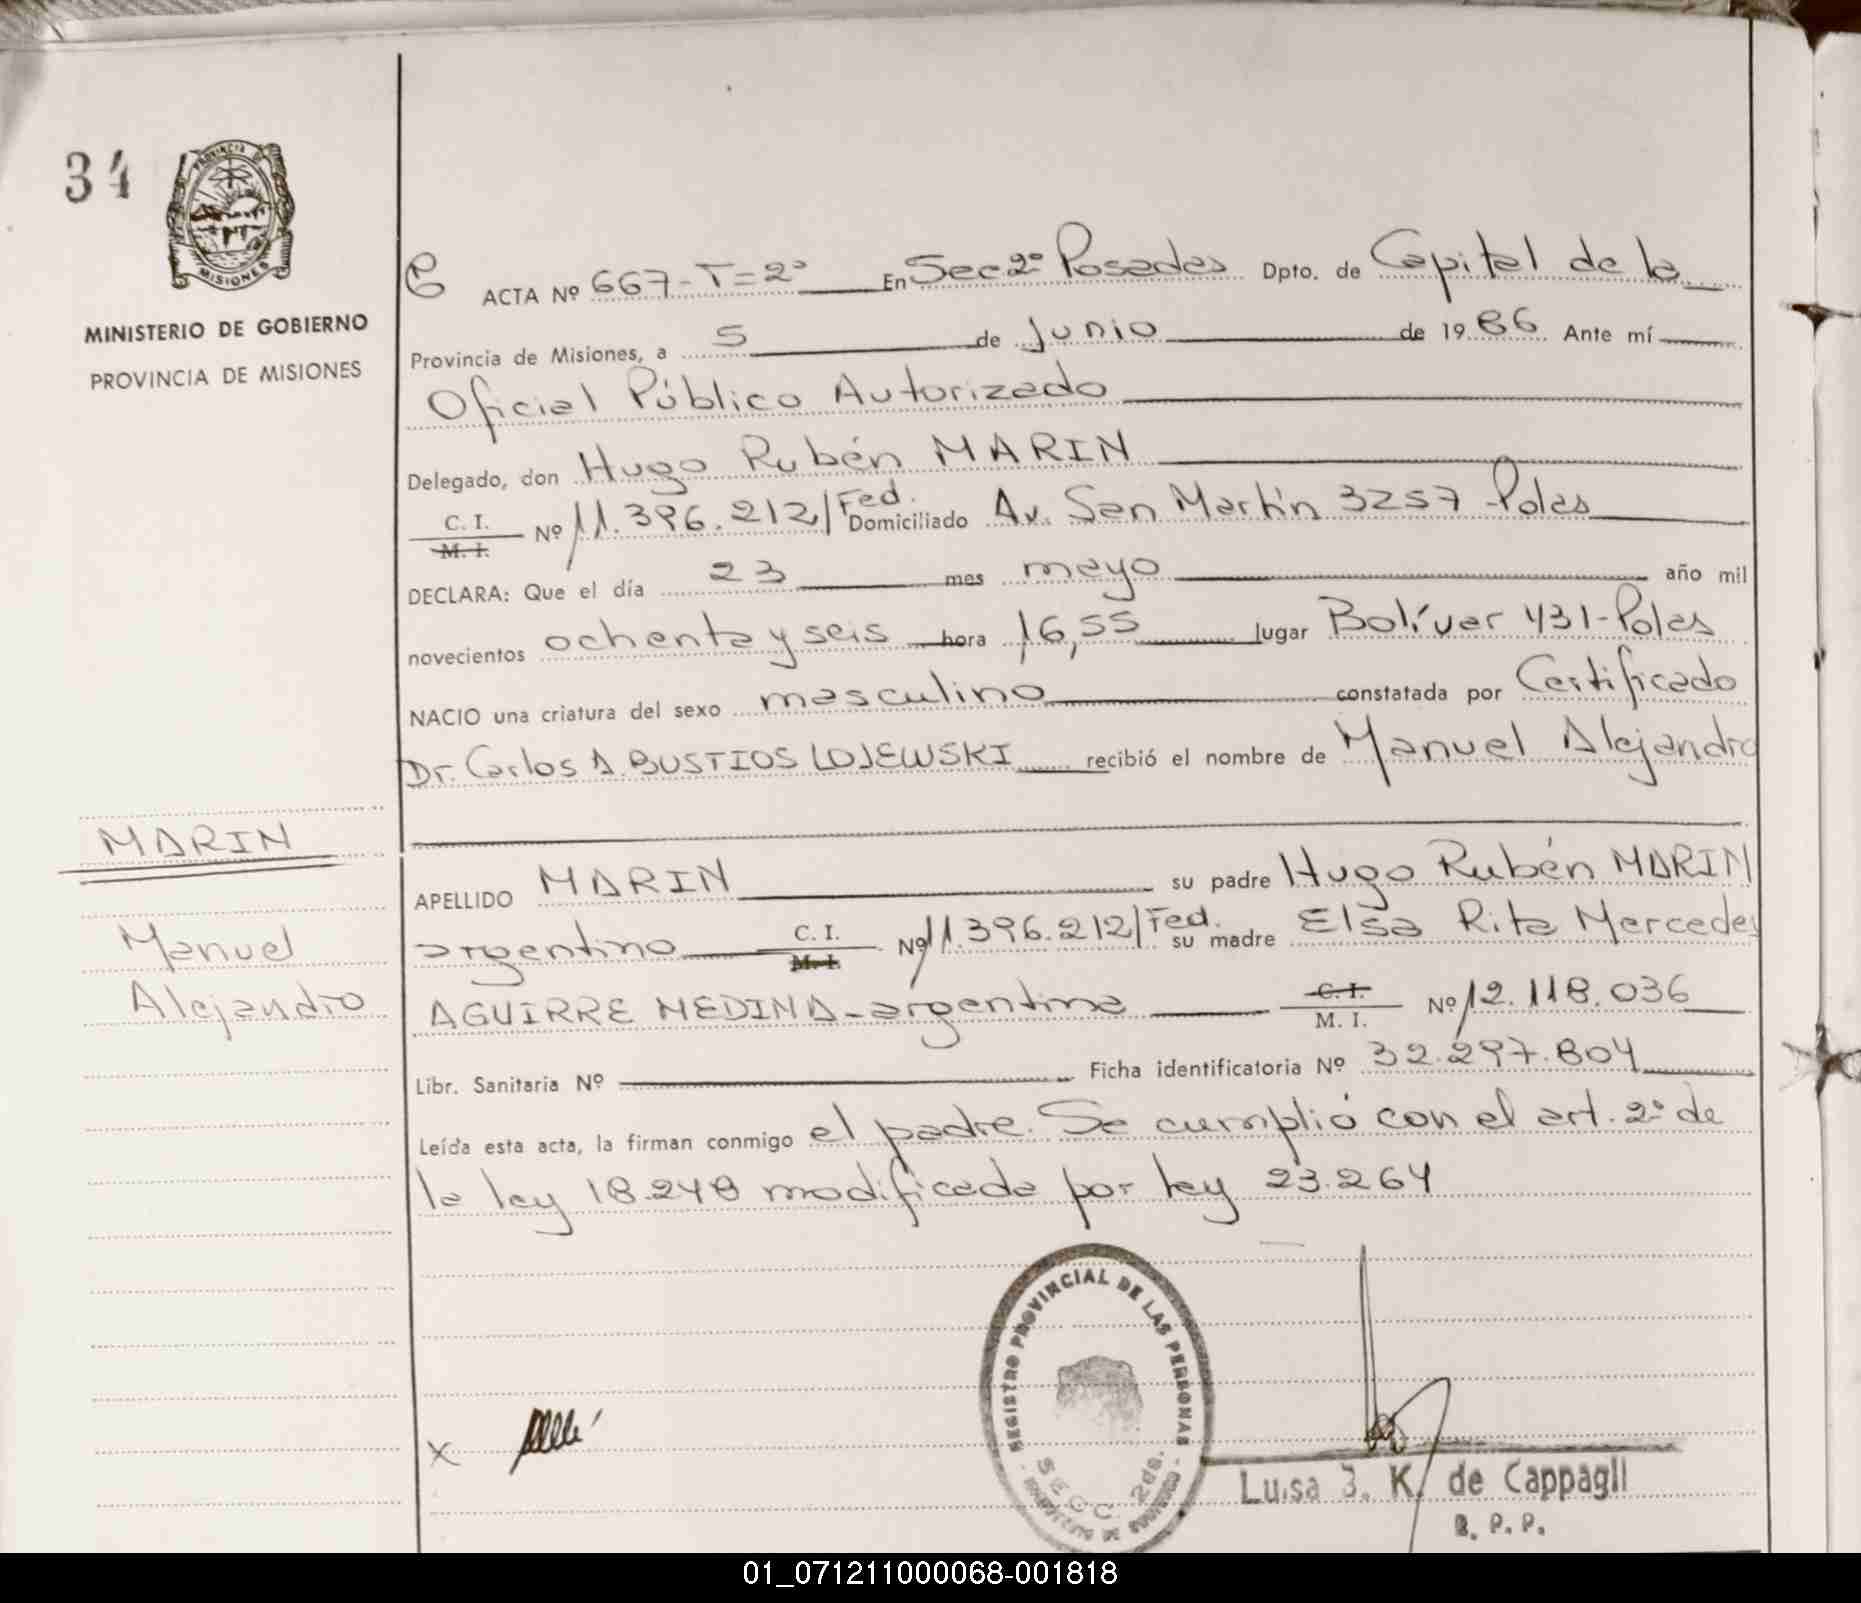 34
PROVINCIA DE
MISIONES
MINISTERIO DE GOBIERNO
PROVINCIA DE MISIONES
ACTA Nº 667-T=2º En Sec 2º Posadas Dpto. de Capital de la
Provincia de Misiones, a 5 de Junio de 1986 Ante mí
Oficial Público Autorizado
Delegado, don Hugo Rubén MARIN
C. I.
M. I.
Nº 11.396.212/Fed. Domiciliado Av. San Martín 3257 Pdas
DECLARA: Que el día 23 mes mayo año mil
novecientos ochenta y seis hora 16,55 lugar Bolívar 431-Pdas
NACIO una criatura del sexo masculino constatada por Certificado
Dr. Carlos A. BUSTIOS LOJEWSKI recibió el nombre de Manuel Alejandro
MARIN
Manuel
Alejandro
APELLIDO MARIN su padre Hugo Rubén MARIN
argentino C. I. M. I. Nº 11.396.212/Fed. su madre Elsa Rita Mercedes
AGUIRRE MEDINA-argentina C. I. M. I. Nº 12.118.036
Libr. Sanitaria Nº Ficha identificatoria Nº 32.297.804
Leída esta acta, la firman conmigo el padre. Se cumplió con el art. 2º de
la ley 18.248 modificada por ley 23.264
REGISTRO PROVINCIAL DE LAS PERSONAS
SECC. 2da.
X
Luisa J. K. de Cappagli
01_071211000068-001818